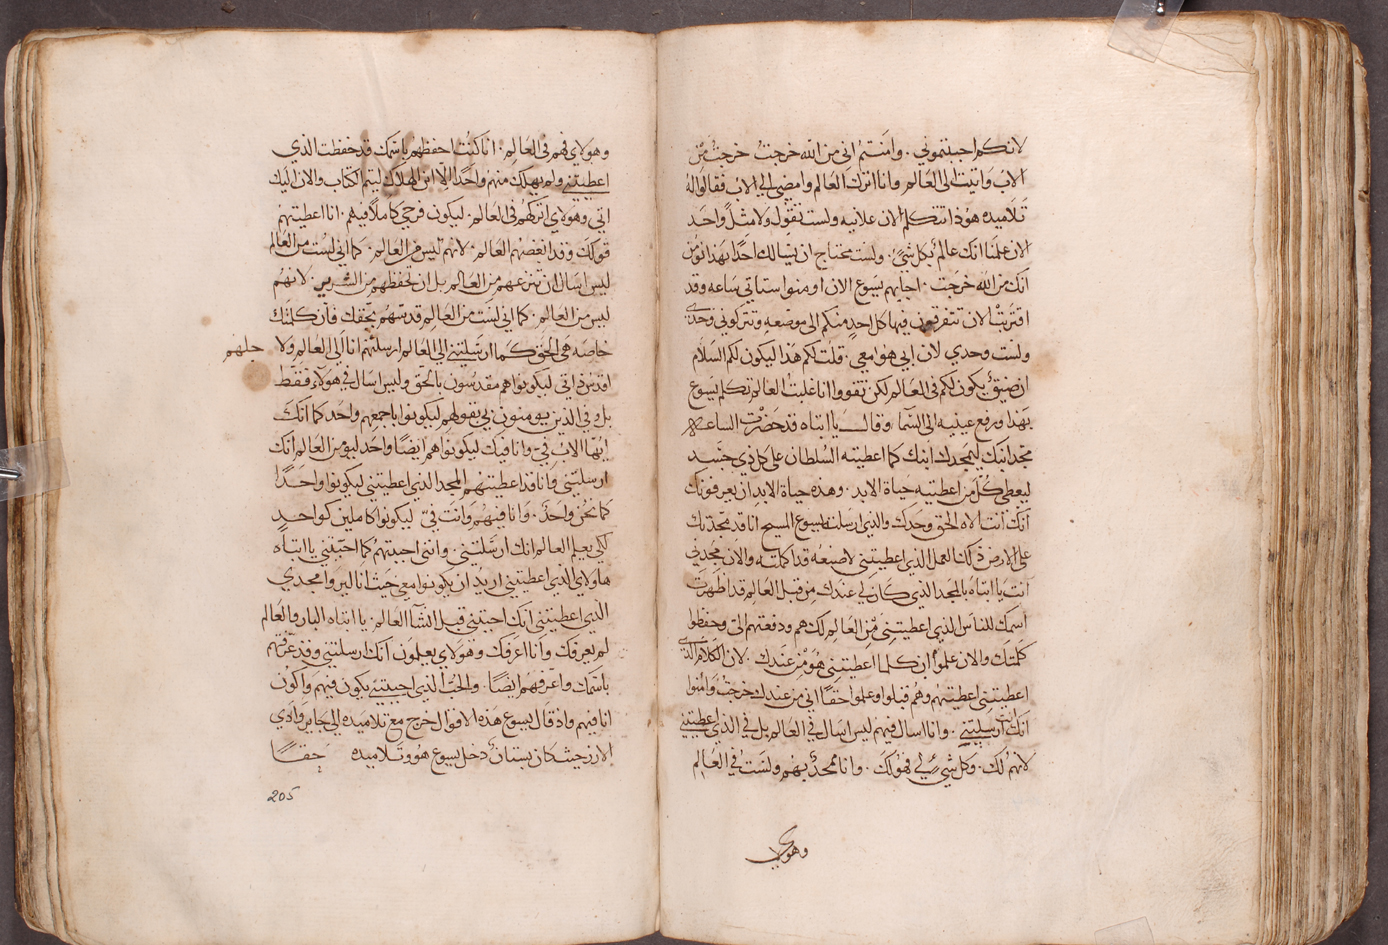 لانكم احببتموني . وامنتم اني من الله خرجت خرجت من
الاب واتيت الى العالم وانا اترك العالم وامضي الى الاب فقالوا له
تلاميده هوذا تتكلم الان علانيه ولست تقول ولا مثلاً واحد
الان علمنا انك عالم بكل شي . ولست محتاج ان يسالك احدًا بهدا نومن
انك من الله خرجت . اجابهم يسوع الان اومنوا ستاتي ساعه وقد
اقتربت الان تتفرقون فيها كل احدٍ منكم الى موضعه وتتركوني وحدي
ولست وحدي لان ابي هو معي . قلت لكم هدا ليكون لكم السلام
ان ضيق يكون لكم في العالم لكن تقووا انا غلبت العالم تكلم يسوع
بهدا ورفع عينيه الى السما وقال يا ابتاه قد حضرت الساعه
مجد ابنك ليمجدك ابنك كما اعطيته السلطان على كل ذي جسد
ليعطي كل من اعطيته حياة الابد . وهذه حياة الابد ان يعرفونك
انك انت الاه الحق وحدك والذي ارسلته يسوع المسيح انا قد مجدتك
على الارض ذلك العمل الذي اعطيتني لاصنعه قد اكملته والان مجدني
انت يا ابتاه بالمجد الذي كان لي عندك من قبل العالم قد اظهرت
اسمك للناس الذي اعطيتني من العالم لك هم ودفعتهم الي وحفظوا
كلمتك والان علموا ان كلما اعطيتني هو من عندك . لان الكلام الذي
اعطيتني اعطيتهم وهم قبلوا وعلموا حقًا اني من عندك خرجت وامنوا
انك انت ارسلتني . وانا اسال فيهم ليس اسال في العالم بل في الذي اعطيتني
لانهم لك . وكل شي لي فهو لك . وانا ممجد بهم ولست في العالم
وهولاي
وهولاي فهم في العالم . انا كنت احفظهم باسمك قد حفظت الذي
اعطيتني ولم يهلك منهم واحدًا الا ابن الهلاك ليتم الكتاب والان اليك
اتي وهولاي اتركهم في العالم . ليكون فرحي كاملاً فيهم . انا اعطيتهم
قولك وقد ابغضهم العالم . لانهم ليس من العالم . كما اني لست من العالم
ليس اسال ان تنزعهم من العالم بل ان تحفظهم من الشرير . لانهم
ليس من العالم . كما اني لست من العالم قدسهم بحقك فان كلمتك
خاصه هي الحق كما ارسلتني الى العالم ارسلتهم انا الى العالم ولاجلهم
اقدس ذاتي ليكونوا هم مقدسون بالحق وليس اسال في هولاء فقط
بل وفي الذين يومنون بي بقولهم ليكونوا باجمعهم واحد كما انك
ايها الاب في وانا فيك ليكونوا هم ايضًا واحد ليومن العالم انك
ارسلتني وانا قد اعطيتهم المجد الذي اعطيتني ليكونوا واحدًا
كما نحن واحد . وانا فيهم وانت في ليكونوا كاملين كواحدٍ
لكي يعلم العالم انك ارسلتني . وانني احببتهم كما احببتني يا ابتاه
هاولاي الذي اعطيتني اريد ان يكونوا معي حيث انا ليروا مجدي
الذي اعطيتني انك احببتني قبل انشا العالم . يا ابتاه البار والعالم
لم يعرفك وانا اعرفك وهولاي يعلمون انك ارسلتني وقد عرفتهم
باسمك واعرفهم ايضًا . والحب الذي احببتني يكون فيهم واكون
انا فيهم واذ قال يسوع هذه الاقوال خرج مع تلاميده الى جايز وادي
الارز حيث كان بستان دخل يسوع هو وتلاميده حقًا
205